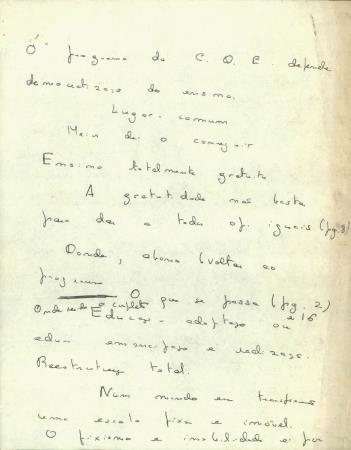 O programa da C. D. E. defende
democratização do ensino.
Lugar-comum
Meio de o conseguir
Ensino totalmente gratuito
A gratuitidade não basta
para dar a todos op. iguais (pg. 8)
Donde, abono (voltar ao
programa
O que se passa (pg. 2)
Onde a 16
Educação adaptação ou
educ emancipação e realização.
Reestruturação total.
Num mundo em transform
uma escola fixa e imóvel.
O fixismo e imobilidade é por